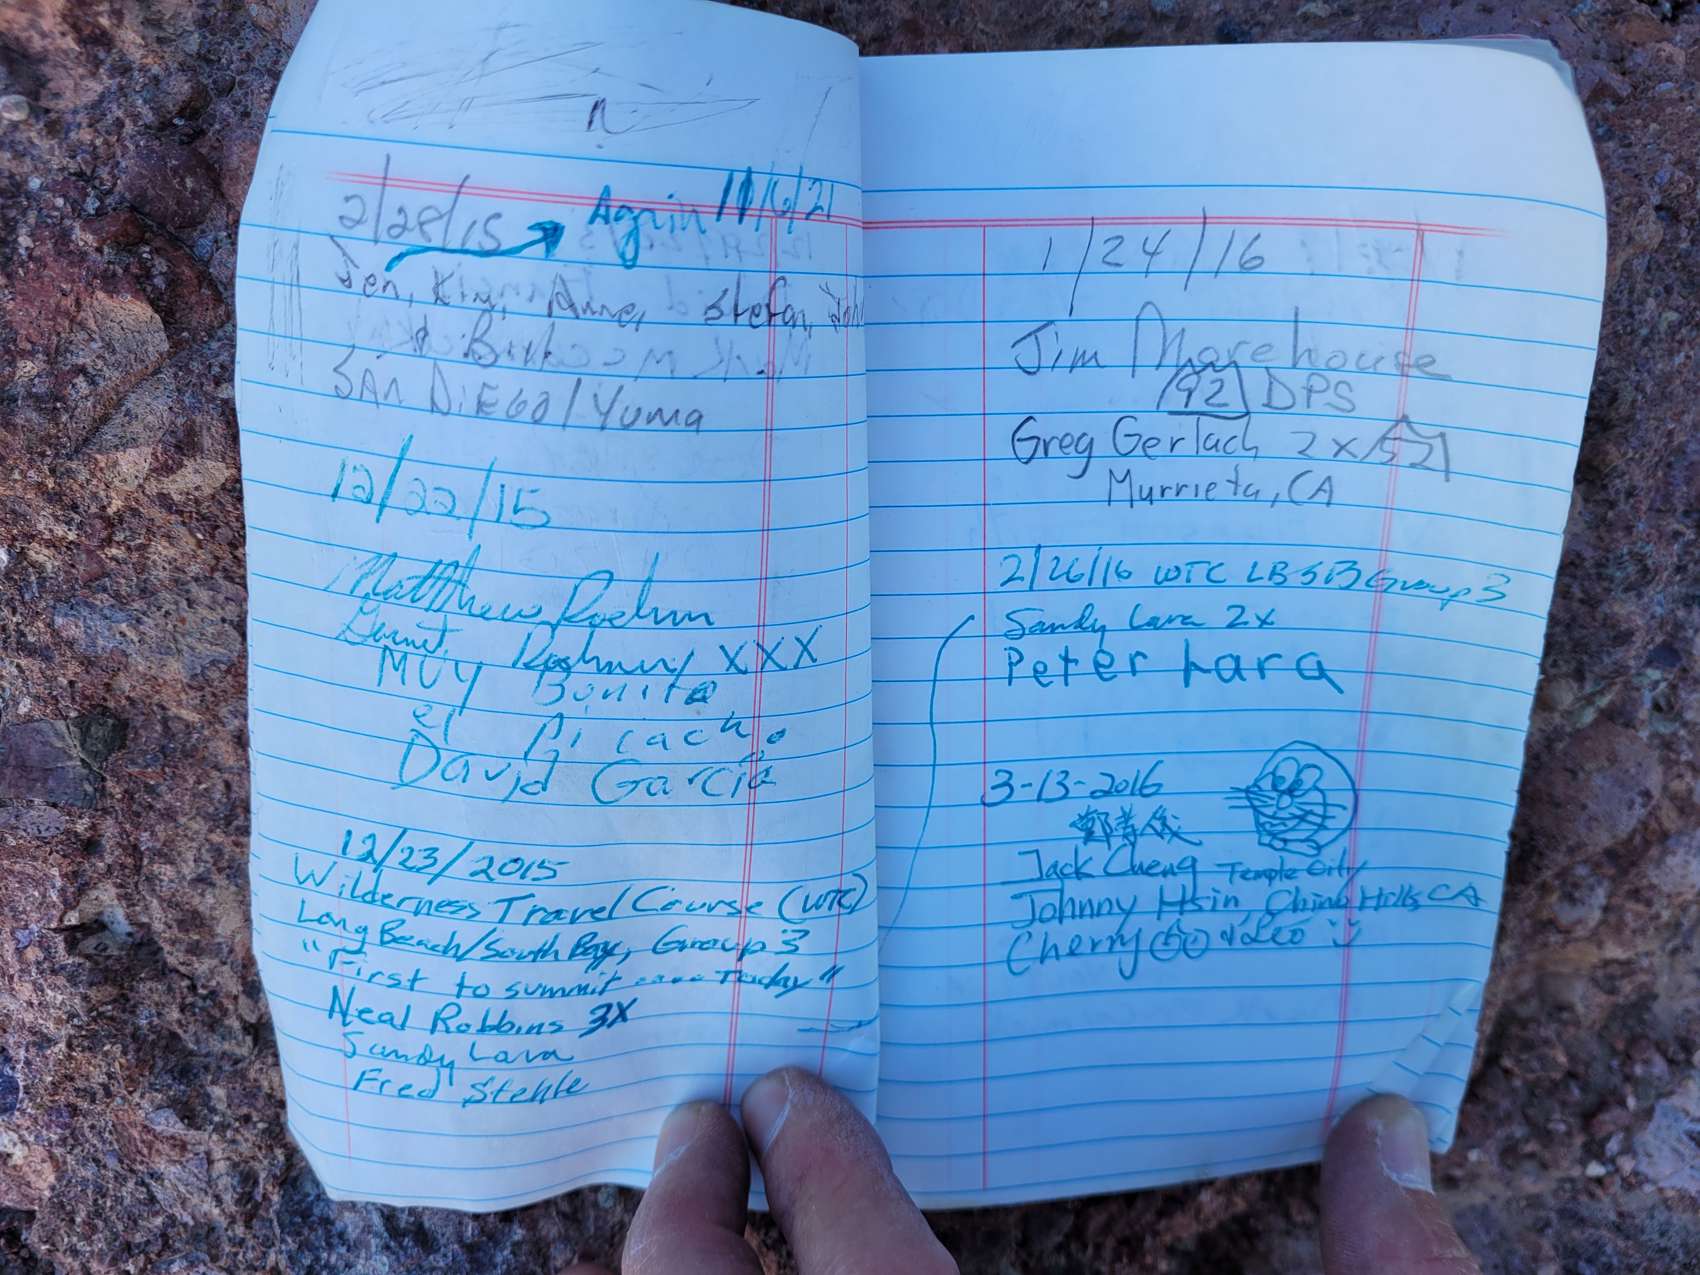 2/28/15 Again 11/6/21
Jen, Kim, Anne, Stefan,
SAn DiEGO/Yuma
12/22/15
Matthew
XXX
MUY Bonito
el Picacho
David Garcia
12/23/2015
Wilderness Travel Course (WTC)
Long Beach/South Bay, Group 3
"First to summit ---- Today"
Neal Robbins 3X
Sandy Lara
Fred Stehle
1/24/16
Jim Morehouse
92 DPS
Greg Gerlach 2x/52
Murrieta, CA
2/26/16 WTC LBSB Group 3
Sandy Lara 2x
Peter Lara
3-13-2016
Jack Cheng Temple City
Johnny Hsin, Chino Hills CA
Cherry & Leo